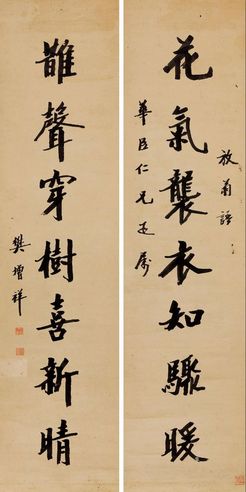 放翁語
花氣襲衣知驟暖
華臣仁兄正屬
䧿聲穿樹喜新晴
樊增祥